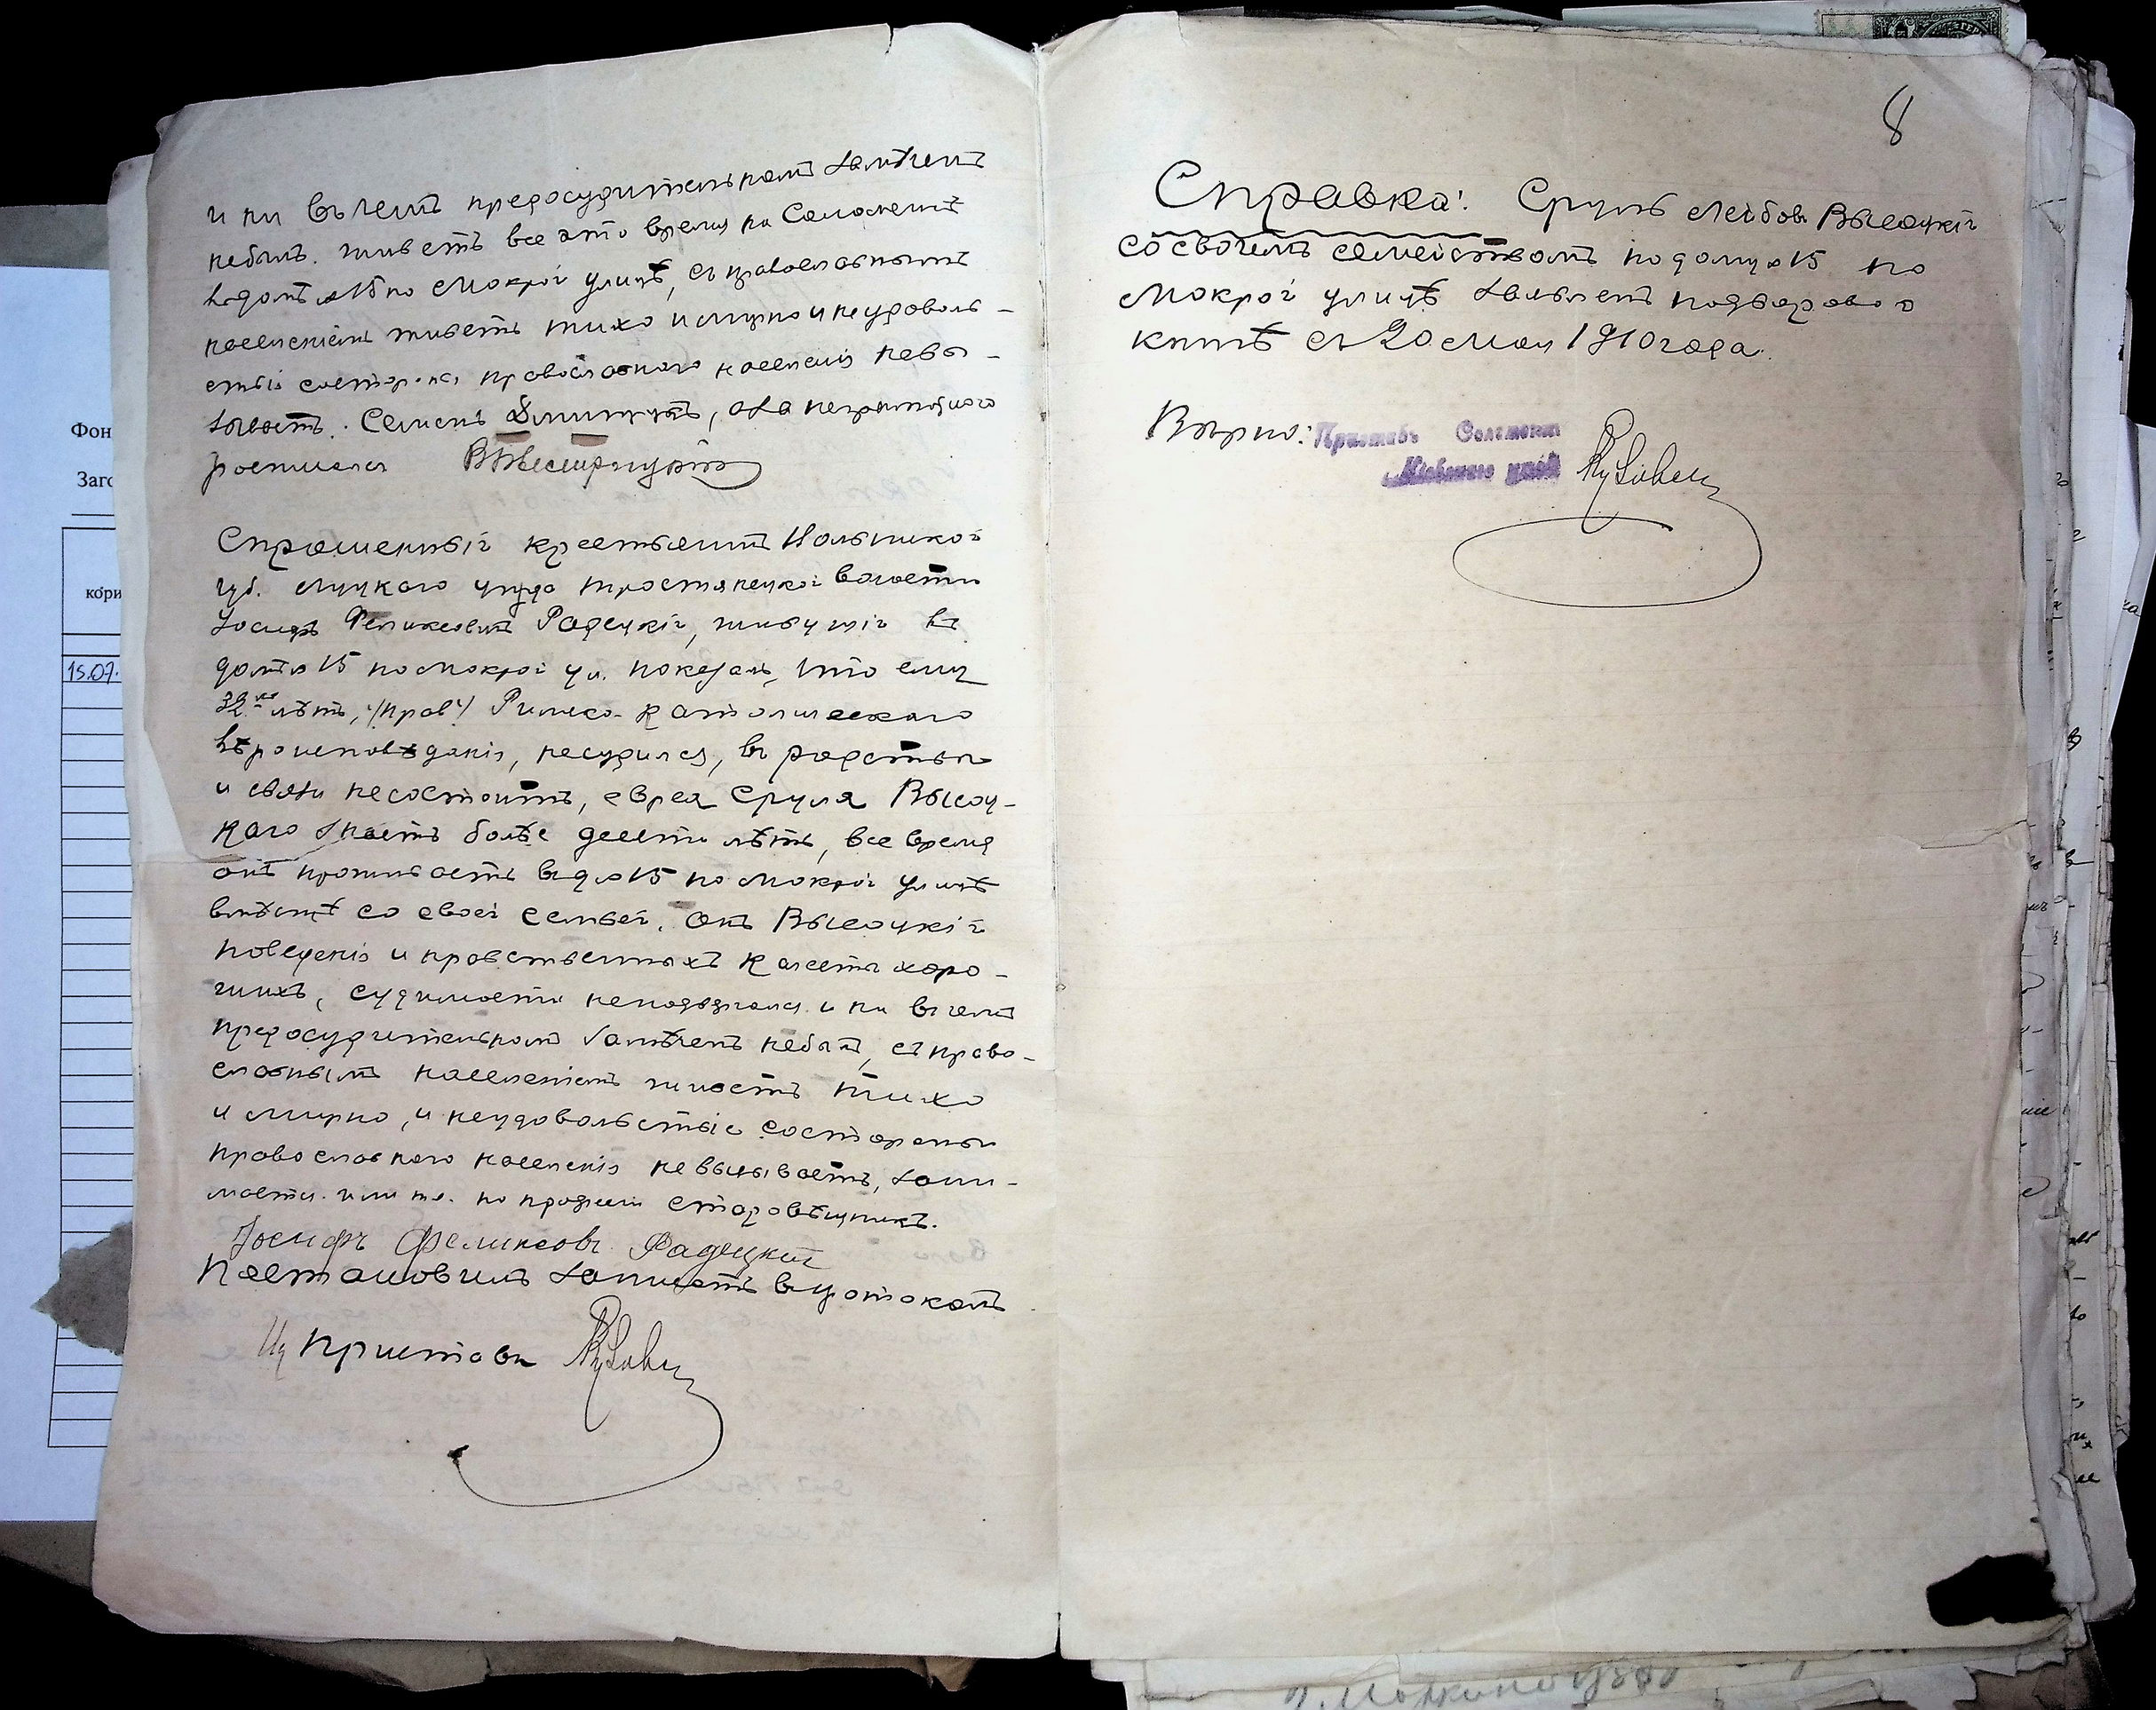 и ни въ чемъ предосудительномъ замѣченъ
небылъ. живетъ все это время на Соломенкѣ
въ домѣ №15 по Мокрой улицѣ, съ православнымъ
населеніемъ живетъ тихо и мирно и неудоволь-
ствій состороны православного населенія невы-
зываетъ. Семенъ, а за неграмотного
росписался
Спрошенный крестьянинъ Волынской
губ. Луцкаго уѣзда тростянецкой волости
Іосифъ Феликсовичъ Радецкій, живущій въ
домѣ №15 по Мокрой ул. показалъ, что ему
32 лѣтъ, Римско-Католическаго
вѣроисповѣданія, несудился, въ родствѣ
и связи несостоитъ, еврея Сруля Высоц-
каго знаетъ болѣе десяти лѣтъ, все время
онъ проживаетъ въ д №15 по Мокрой улицѣ
вмѣстѣ со своей семьей. Онъ Высоцкій
поведенія и нравственныхъ качествъ хоро-
шихъ, судимости неподвергался и ни въ чемъ
предосудительномъ замѣченъ небылъ, съ право-
славнымъ населеніемъ живетъ тихо
и мирно, и неудовольствіе состороны
православного населенія не вызываетъ, зани-
мается по профессіи старовѣщникъ.
Іосифъ Феликсовъ Радецкий
Постановилъ записать въ протоколъ
Приставъ
8
Справка: Сруль Лейбовъ Высоцкій
со своимъ семействомъ по дому №15 по
Мокрой улицѣ заявленъ подворовой
книгѣ съ 20 Мая 1910 года.
Вѣрно: Приставъ Соломенки
Кіевскаго
Фон
Заго
кори
15.07.